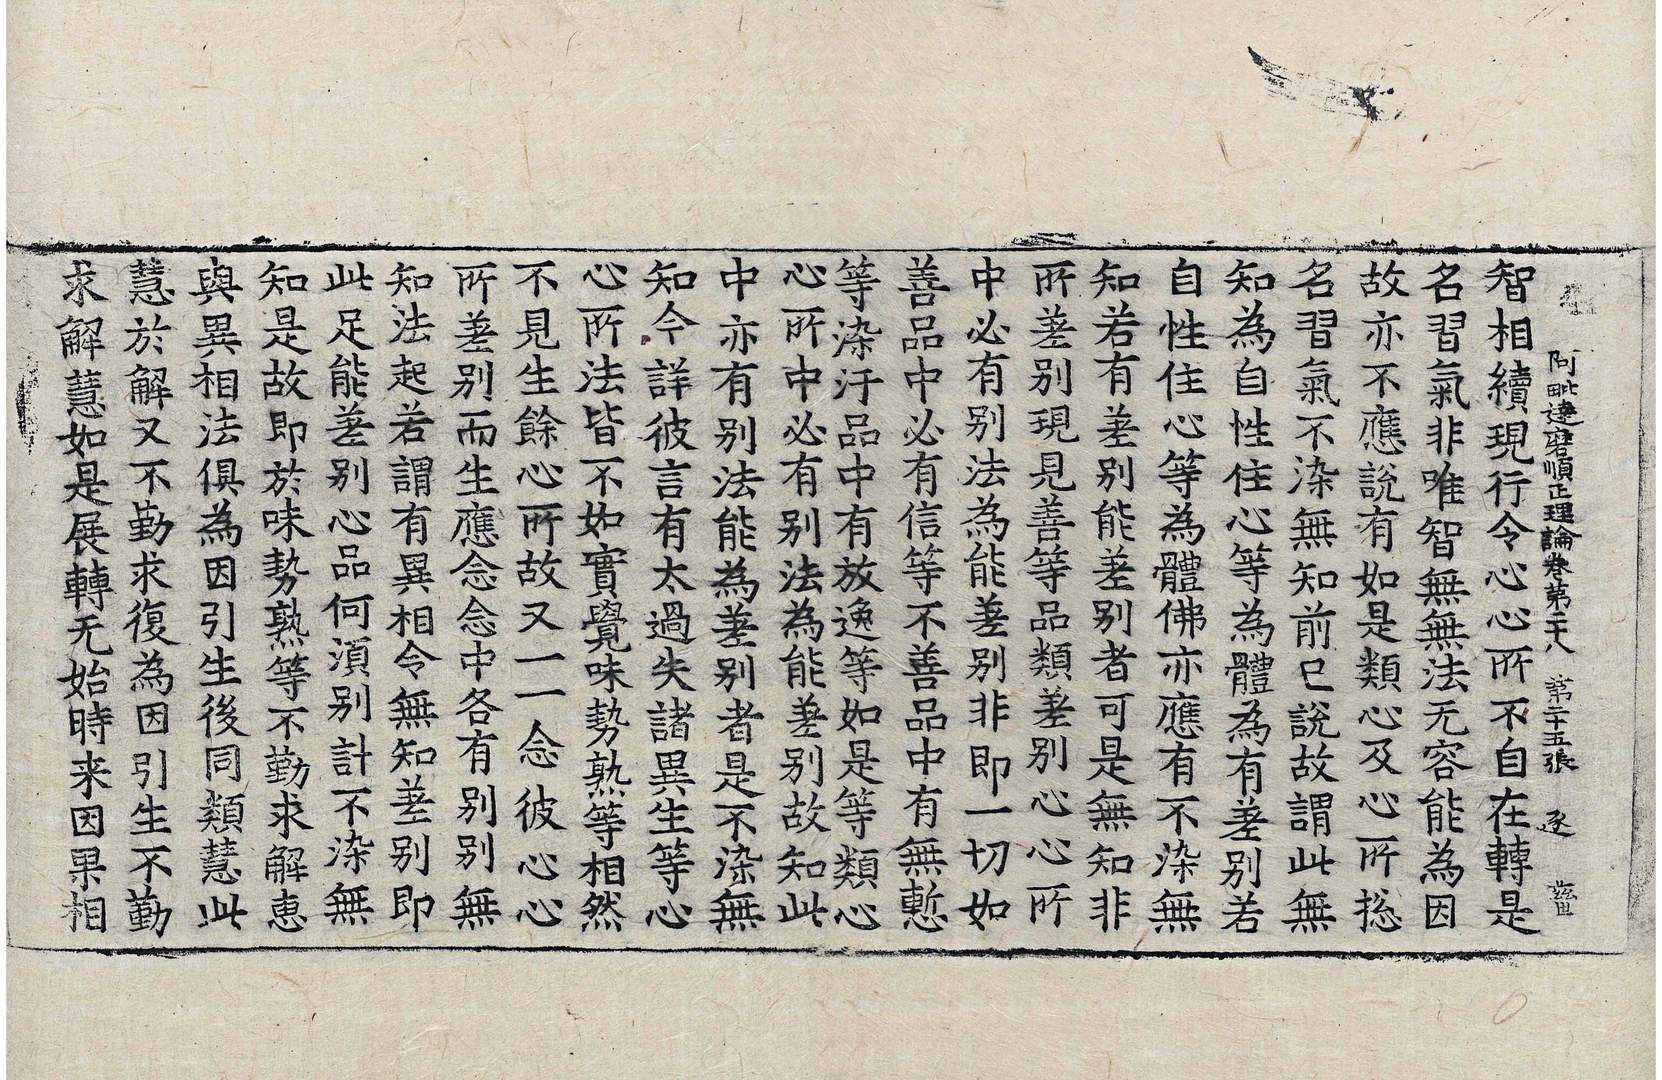 阿毗達磨順正理論卷第二十八 第二十五張 逐
智相續現行令心心所不自在轉是
名習氣非唯智無無法无容能為因
故亦不應說有如是類心及心所捴
名習氣不染無知前已說故謂此無
知為自性住心等為體為有差別若
自性住心等為體佛亦應有不染無
知若有差別能差別者可是無知非
所差別現見善等品類差別心心所
中必有別法為能差別非即一切如
善品中必有信等不善品中有無慙
等染汙品中有放逸等如是等類心
心所中必有別法為能差別故知此
中亦有別法能為差別者是不染無
知今詳彼言有太過失諸異生等心
心所法皆不如實覺味勢熟等相然
不見生餘心所故又一一念彼心心
所差別而生應念念中各有別別無
知法起若謂有異相令無知差別即
此足能差別心品何湏別計不染無
知是故即於味勢熟等不勤求解恵
與異相法俱為因引生後同類慧此
慧於解又不勤求復為因引生不勤
求解慧如是展轉无始時来因果相